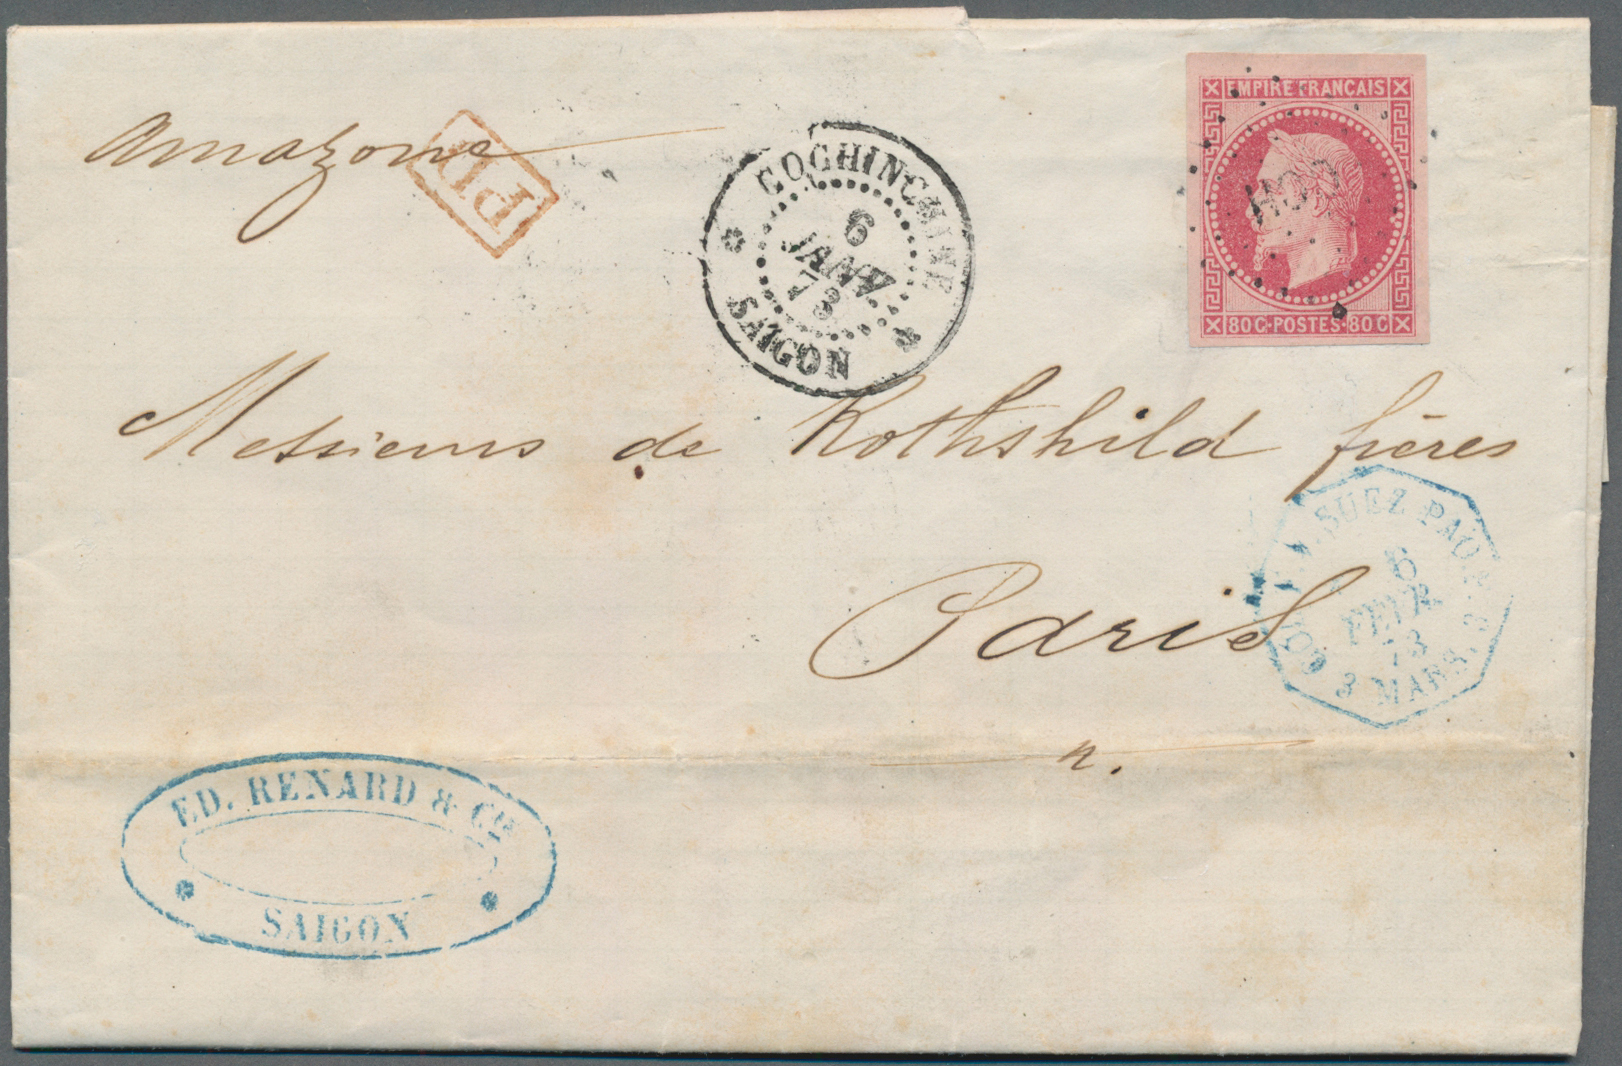 Amazone
PD
COCHINCHINE
6
JANV.
73
SAIGON
EMPIRE FRANÇAIS
80 C·POSTES·80 C
Messieurs de Rothshild frères
SUEZ PAQ.
6
FEVR.
73
COR. MARS.
3
Paris
ED. RENARD & Cie
SAIGON